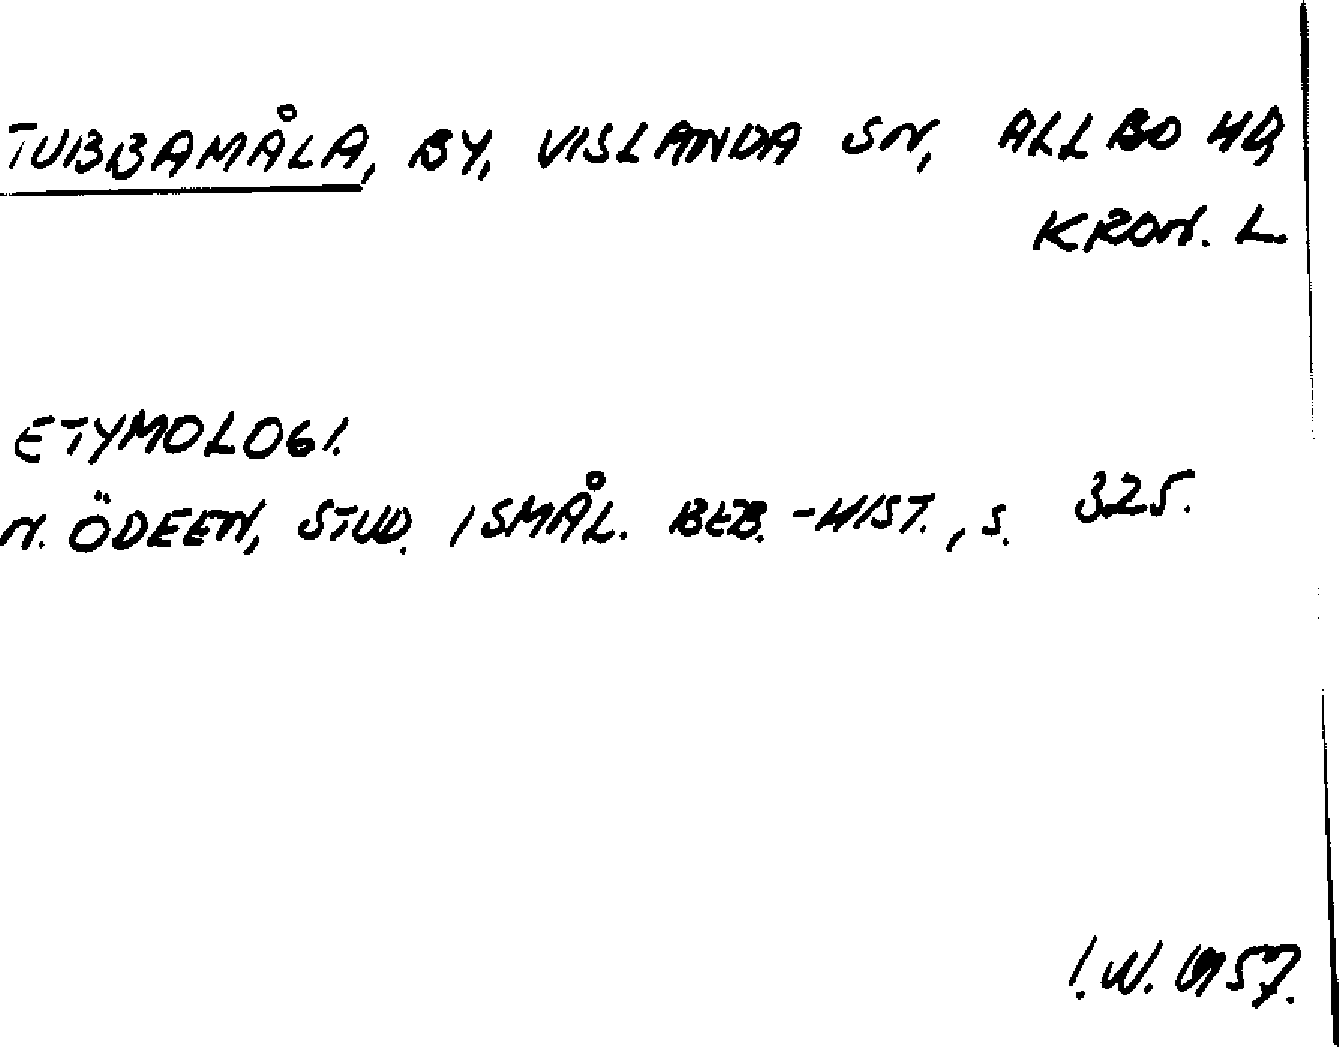 TUBBAMÅLA, BY, VISLANDA SN, ALLBO HD,
KRON. L.
ETYMOLOGI.
N. ÖDEEN, STUD. I SMÅL. BEB.-HIST., S. 325.
I.W. 1957.